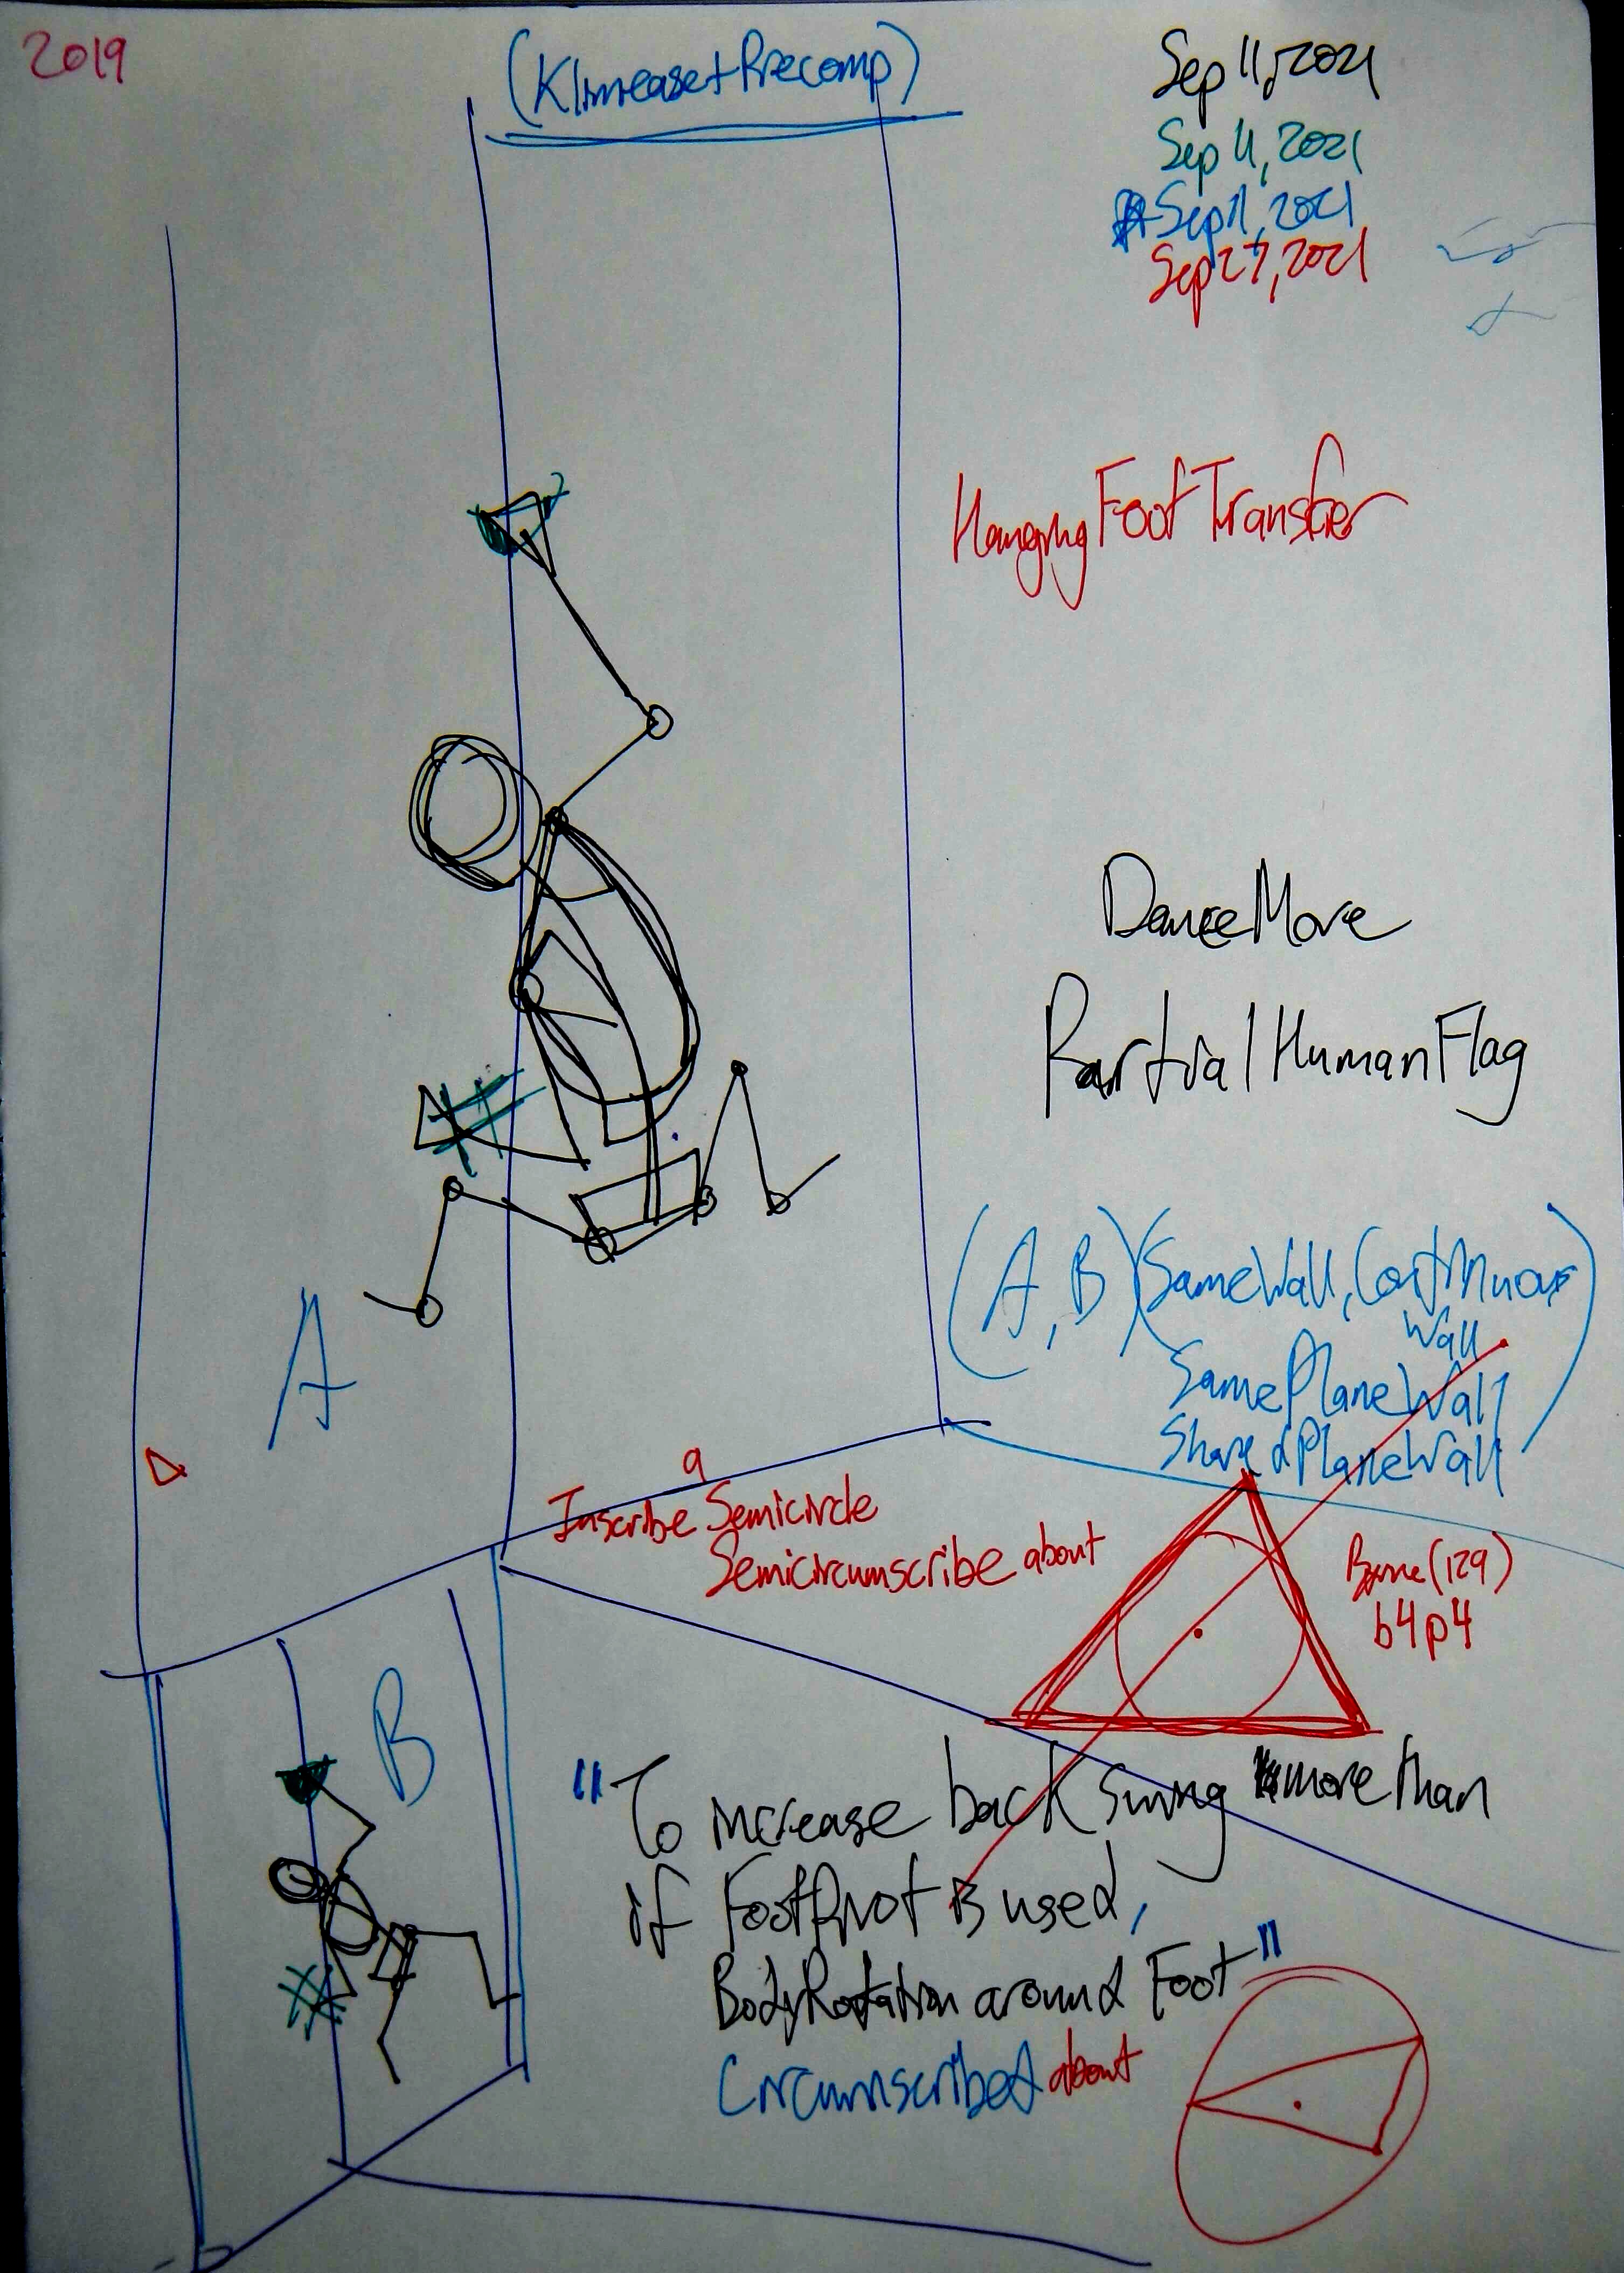 2019
Sep 11, 2021
Sep 11, 2021
Sep 11, 2021
Sep 27, 2021
Hanging Foot Transfer
DanceMove
Partial HumanFlag
(A, B) (SameWall, Continuous
Wall
SamePlaneWall
SharedPlaneWall)
A
a
Inscribe Semicircle
Semicircumscribe about
Byrne (129)
b4p4
B
"To increase back swing more than
if FootPivot is used,
BodyRotation around Foot"
Circumscribed about